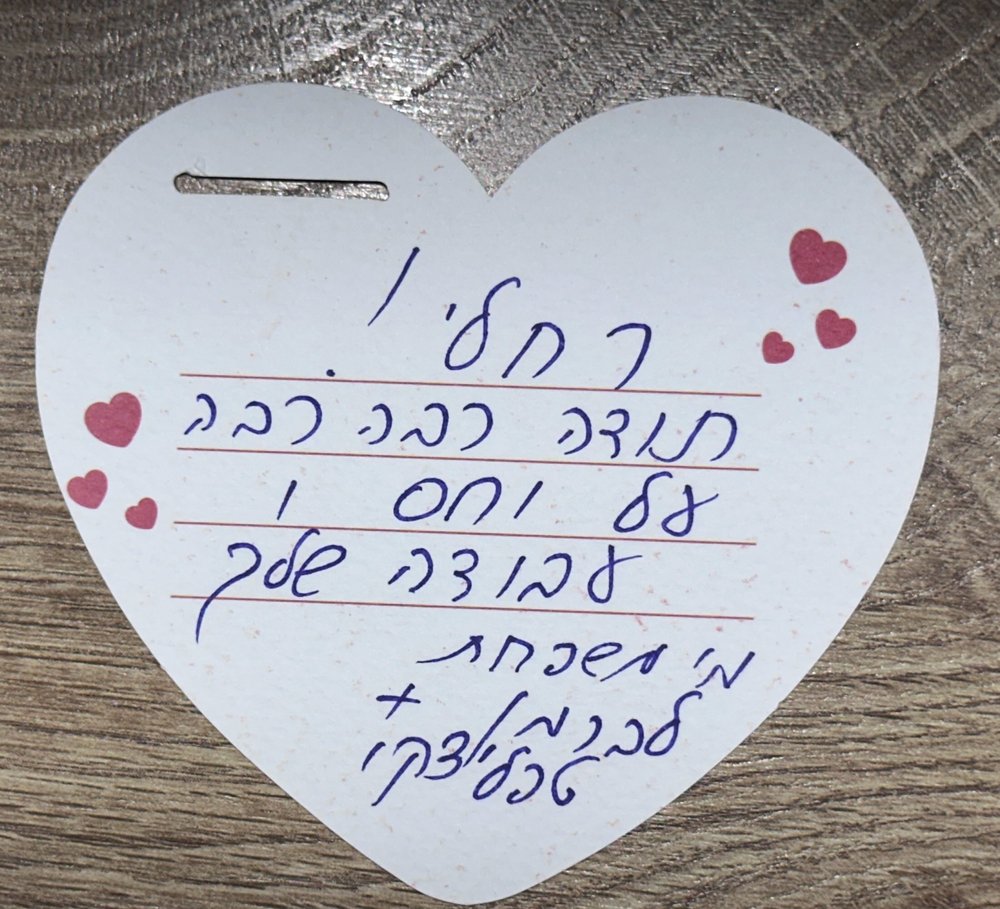 רחלי !
תודה רבה רבה
על וחס ו
עבודה שלך
מי משפחת
לברמן +